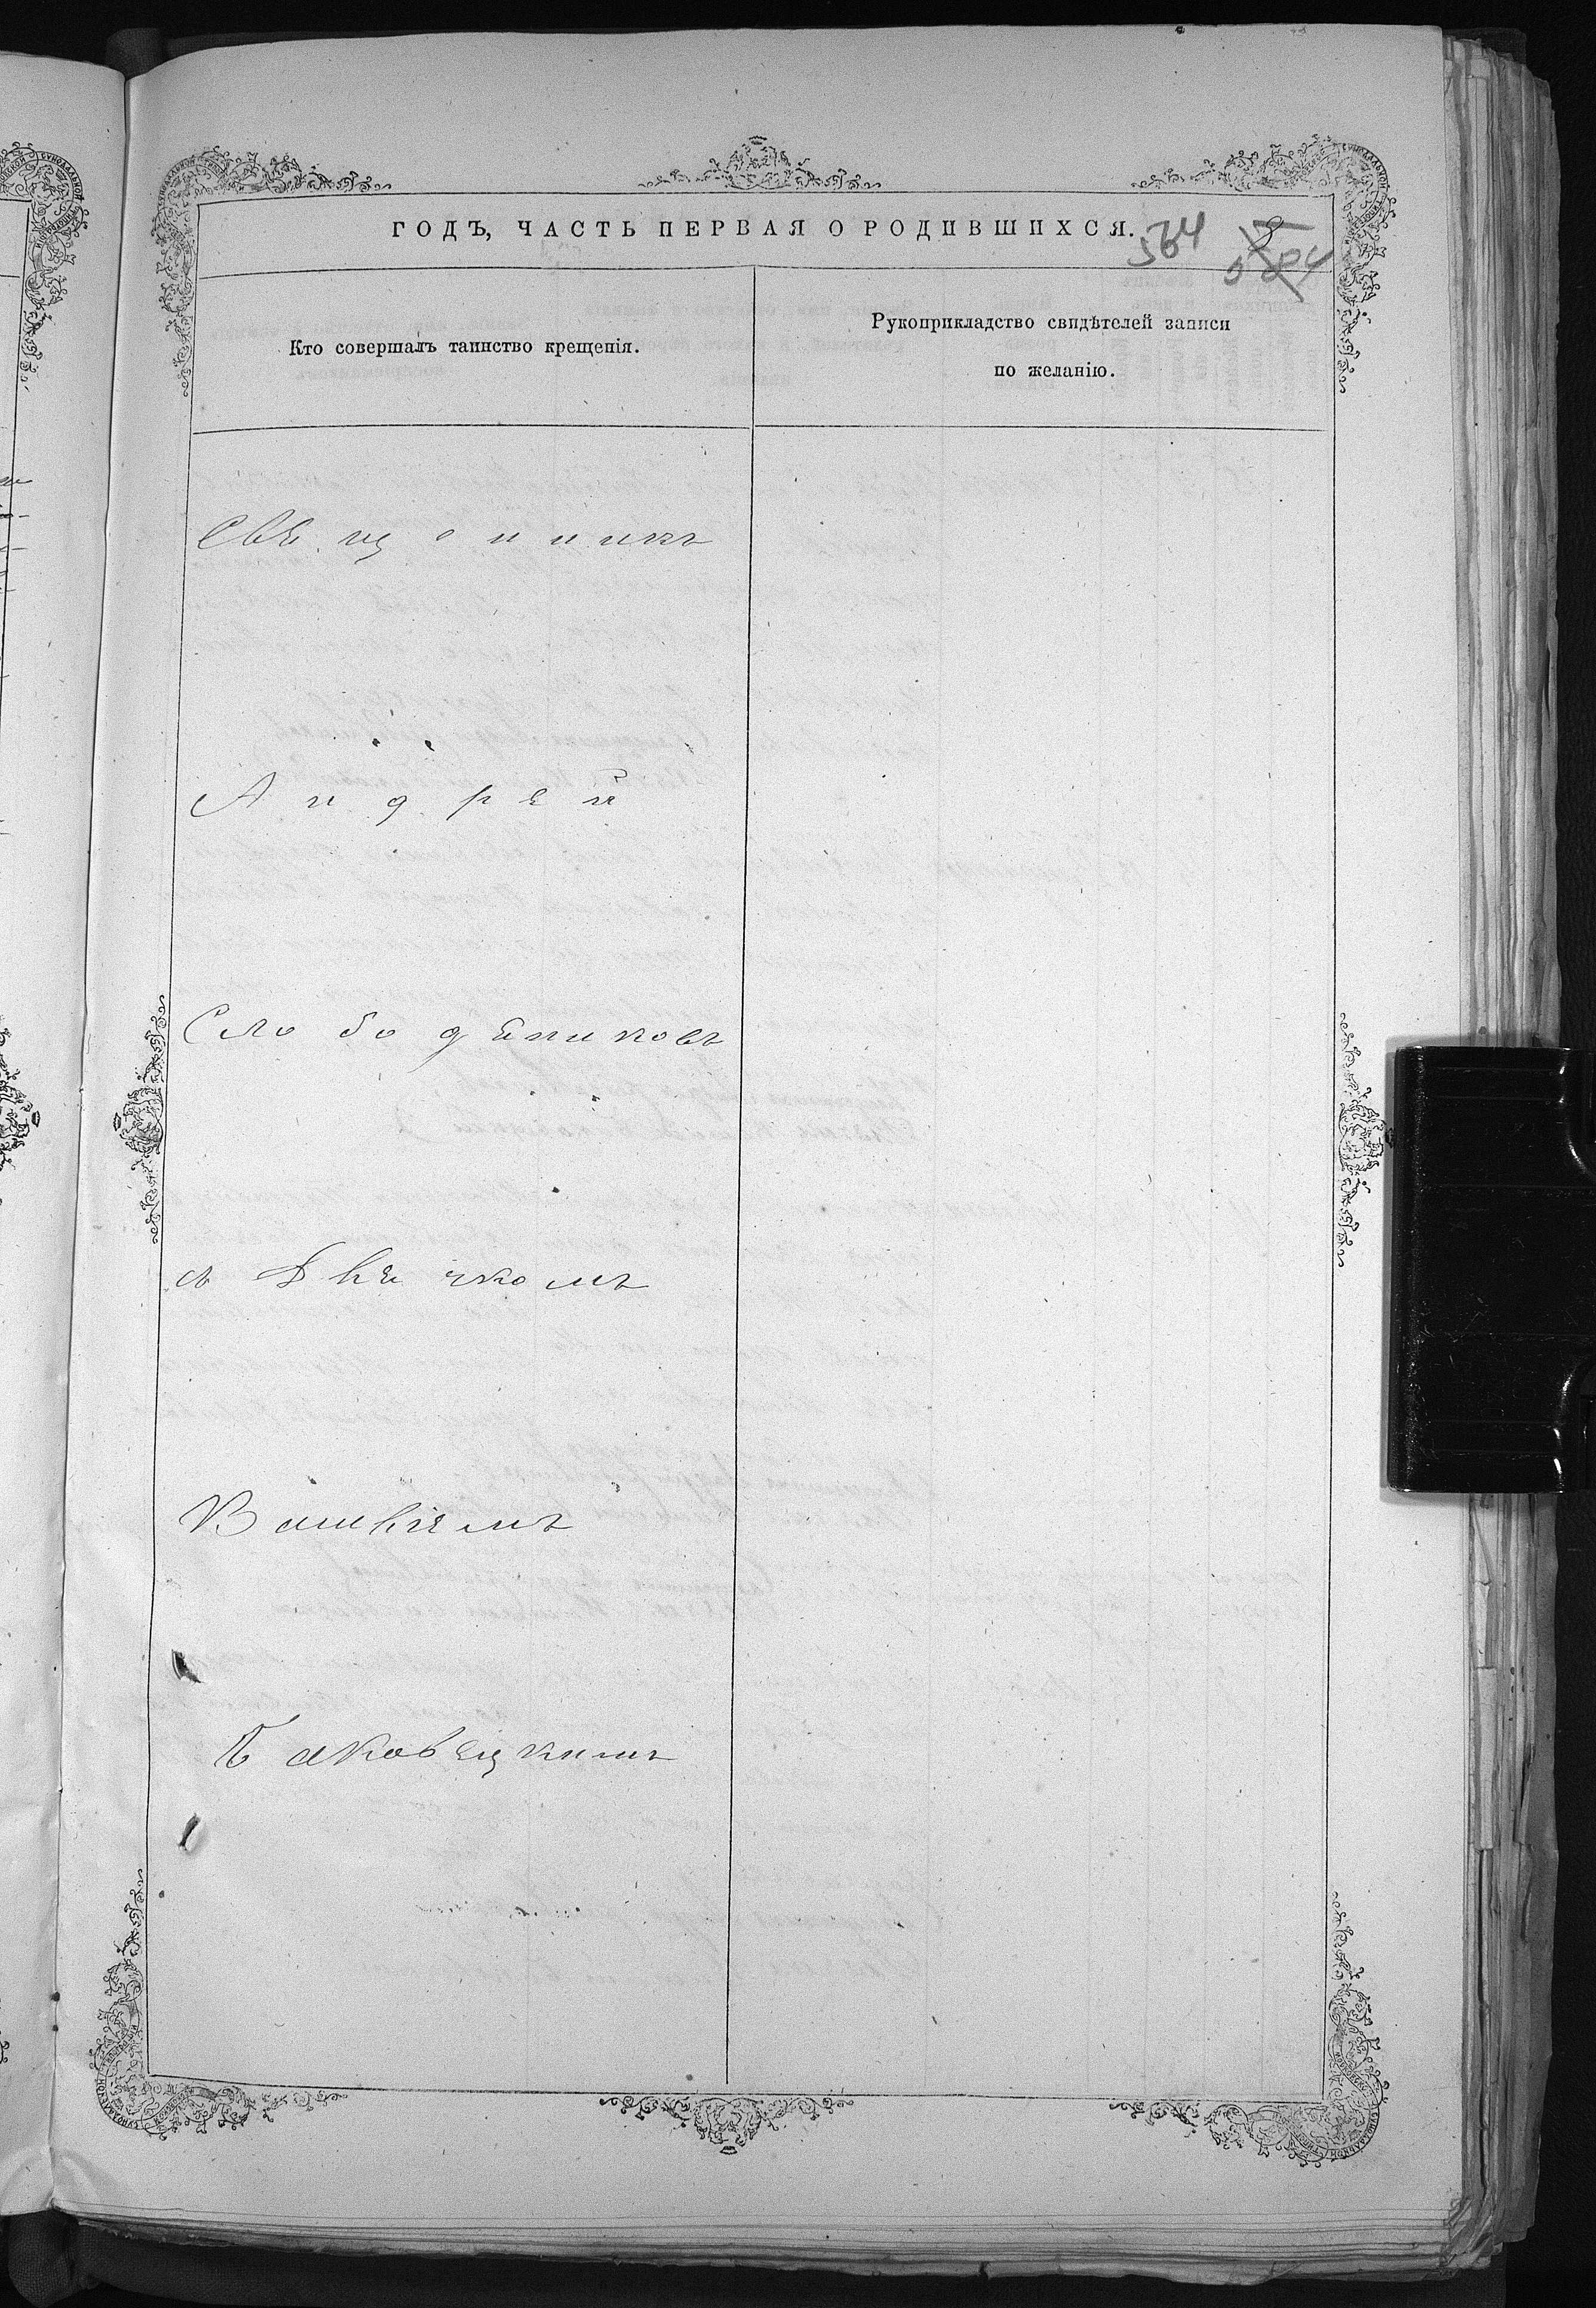 ГОДЪ, ЧАСТЬ ПЕРВАЯ О РОДИВШИХСЯ.
564
Кто совершалъ таинство крещенія.
Рукоприкладство свидѣтелей записи
по желанію.
Священникъ
Андрей
Слободениковъ
съ Дьячкомъ
Василіемъ
Баковецкимъ